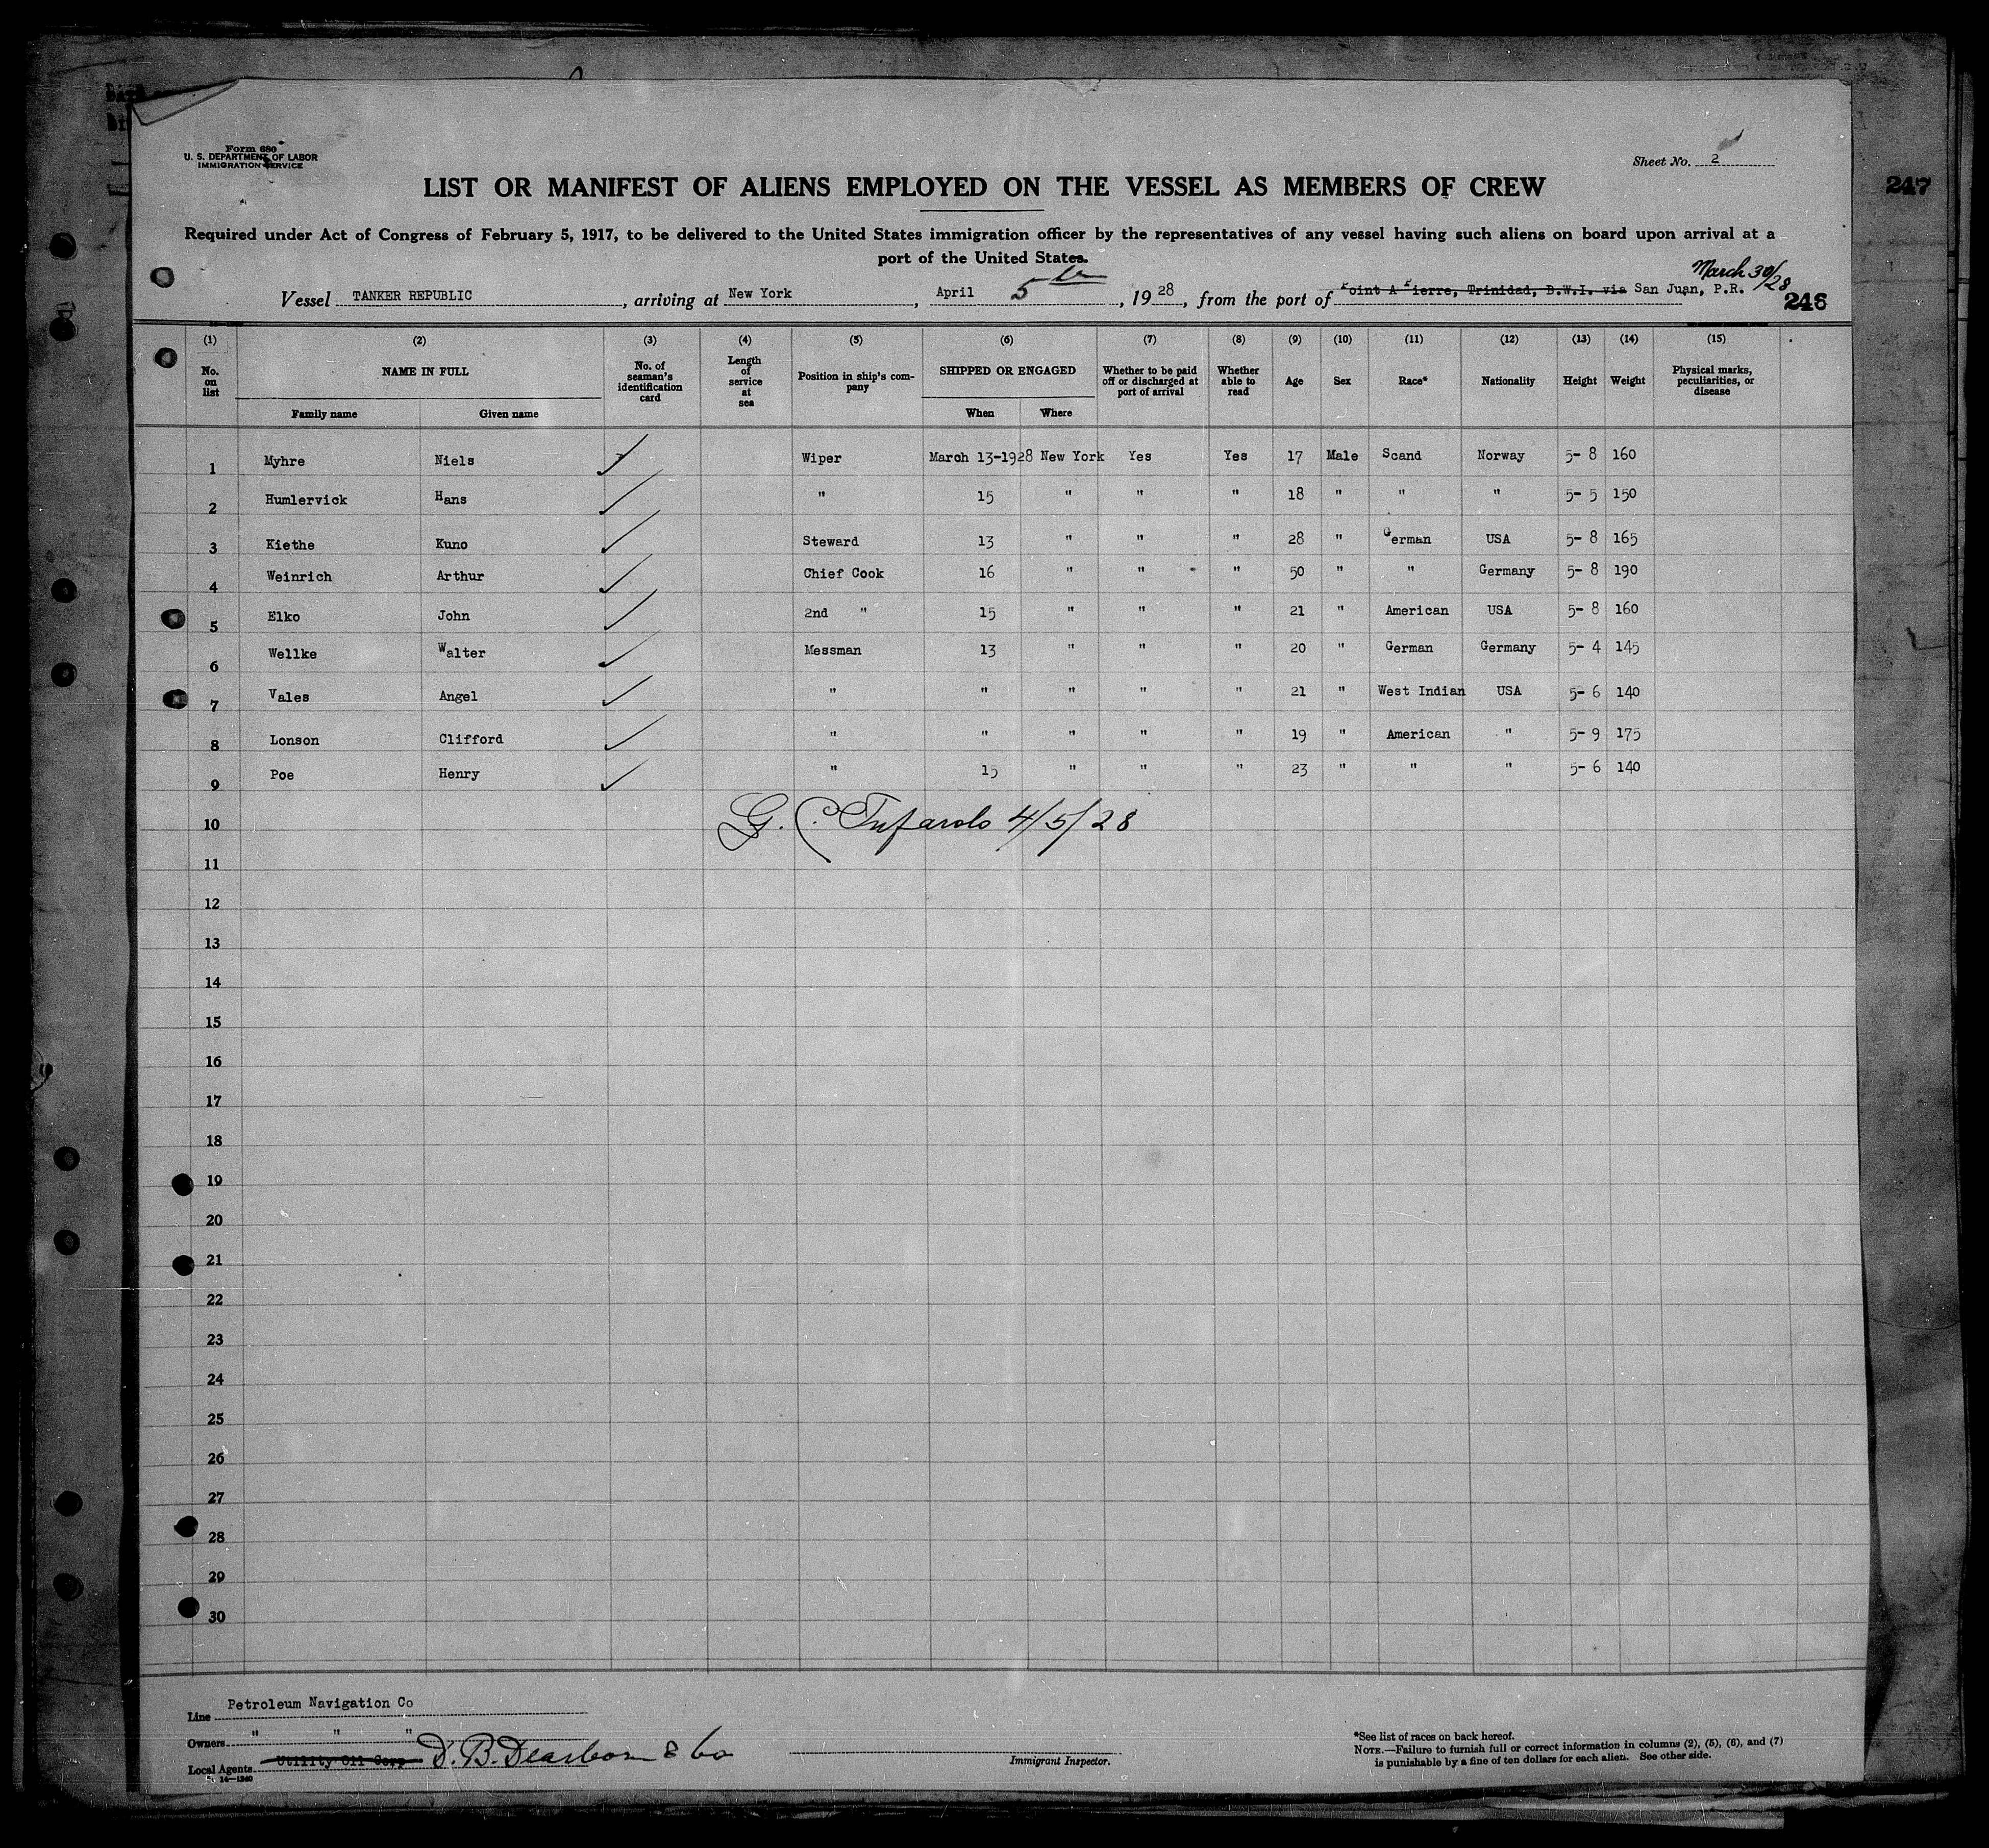 Form 680
U. S. DEPARTMENT OF LABOR
IMMIGRATION SERVICE
Sheet No. 2
LIST OR MANIFEST OF ALIENS EMPLOYED ON THE VESSEL AS MEMBERS OF CREW
247
Required under Act of Congress of February 5, 1917, to be delivered to the United States immigration officer by the representatives of any vessel having such aliens on board upon arrival at a
port of the United States.
March 30/28
Vessel TANKER REPUBLIC, arriving at New York, April 5th, 1928, from the port of Point A Pierre, Trinidad, B.W.I. via San Juan, P.R.
246
(1) (2) (3) (4) (5) (6) (7) (8) (9) (10) (11) (12) (13) (14) (15)
No. on list NAME IN FULL No. of seaman's identification card Length of service at sea Position in ship's company SHIPPED OR ENGAGED Whether to be paid off or discharged at port of arrival Whether able to read Age Sex Race* Nationality Height Weight Physical marks, peculiarities, or disease
Family name Given name When Where
1 Myhre Niels Wiper March 13-1928 New York Yes Yes 17 Male Scand Norway 5- 8 160
2 Humlervick Hans " 15 " " " 18 " " " 5- 5 150
3 Kiethe Kuno Steward 13 " " " 28 " German USA 5- 8 165
4 Weinrich Arthur Chief Cook 16 " " " 50 " " Germany 5- 8 190
5 Elko John 2nd " 15 " " " 21 " American USA 5- 8 160
6 Wellke Walter Messman 13 " " " 20 " German Germany 5- 4 145
7 Vales Angel " " " " " 21 " West Indian USA 5- 6 140
8 Lonson Clifford " " " " " 19 " American " 5- 9 175
9 Poe Henry " 15 " " " 23 " " " 5- 6 140
10 G. C. Tufarolo 4/5/28
11
12
13
14
15
16
17
18
19
20
21
22
23
24
25
26
27
28
29
30
Line Petroleum Navigation Co
Owners " " "
Local Agents Utility Oil Corp D. B. Dearborn & Co
14-1240
Immigrant Inspector.
*See list of races on back hereof.
NOTE.—Failure to furnish full or correct information in columns (2), (5), (6), and (7)
is punishable by a fine of ten dollars for each alien. See other side.